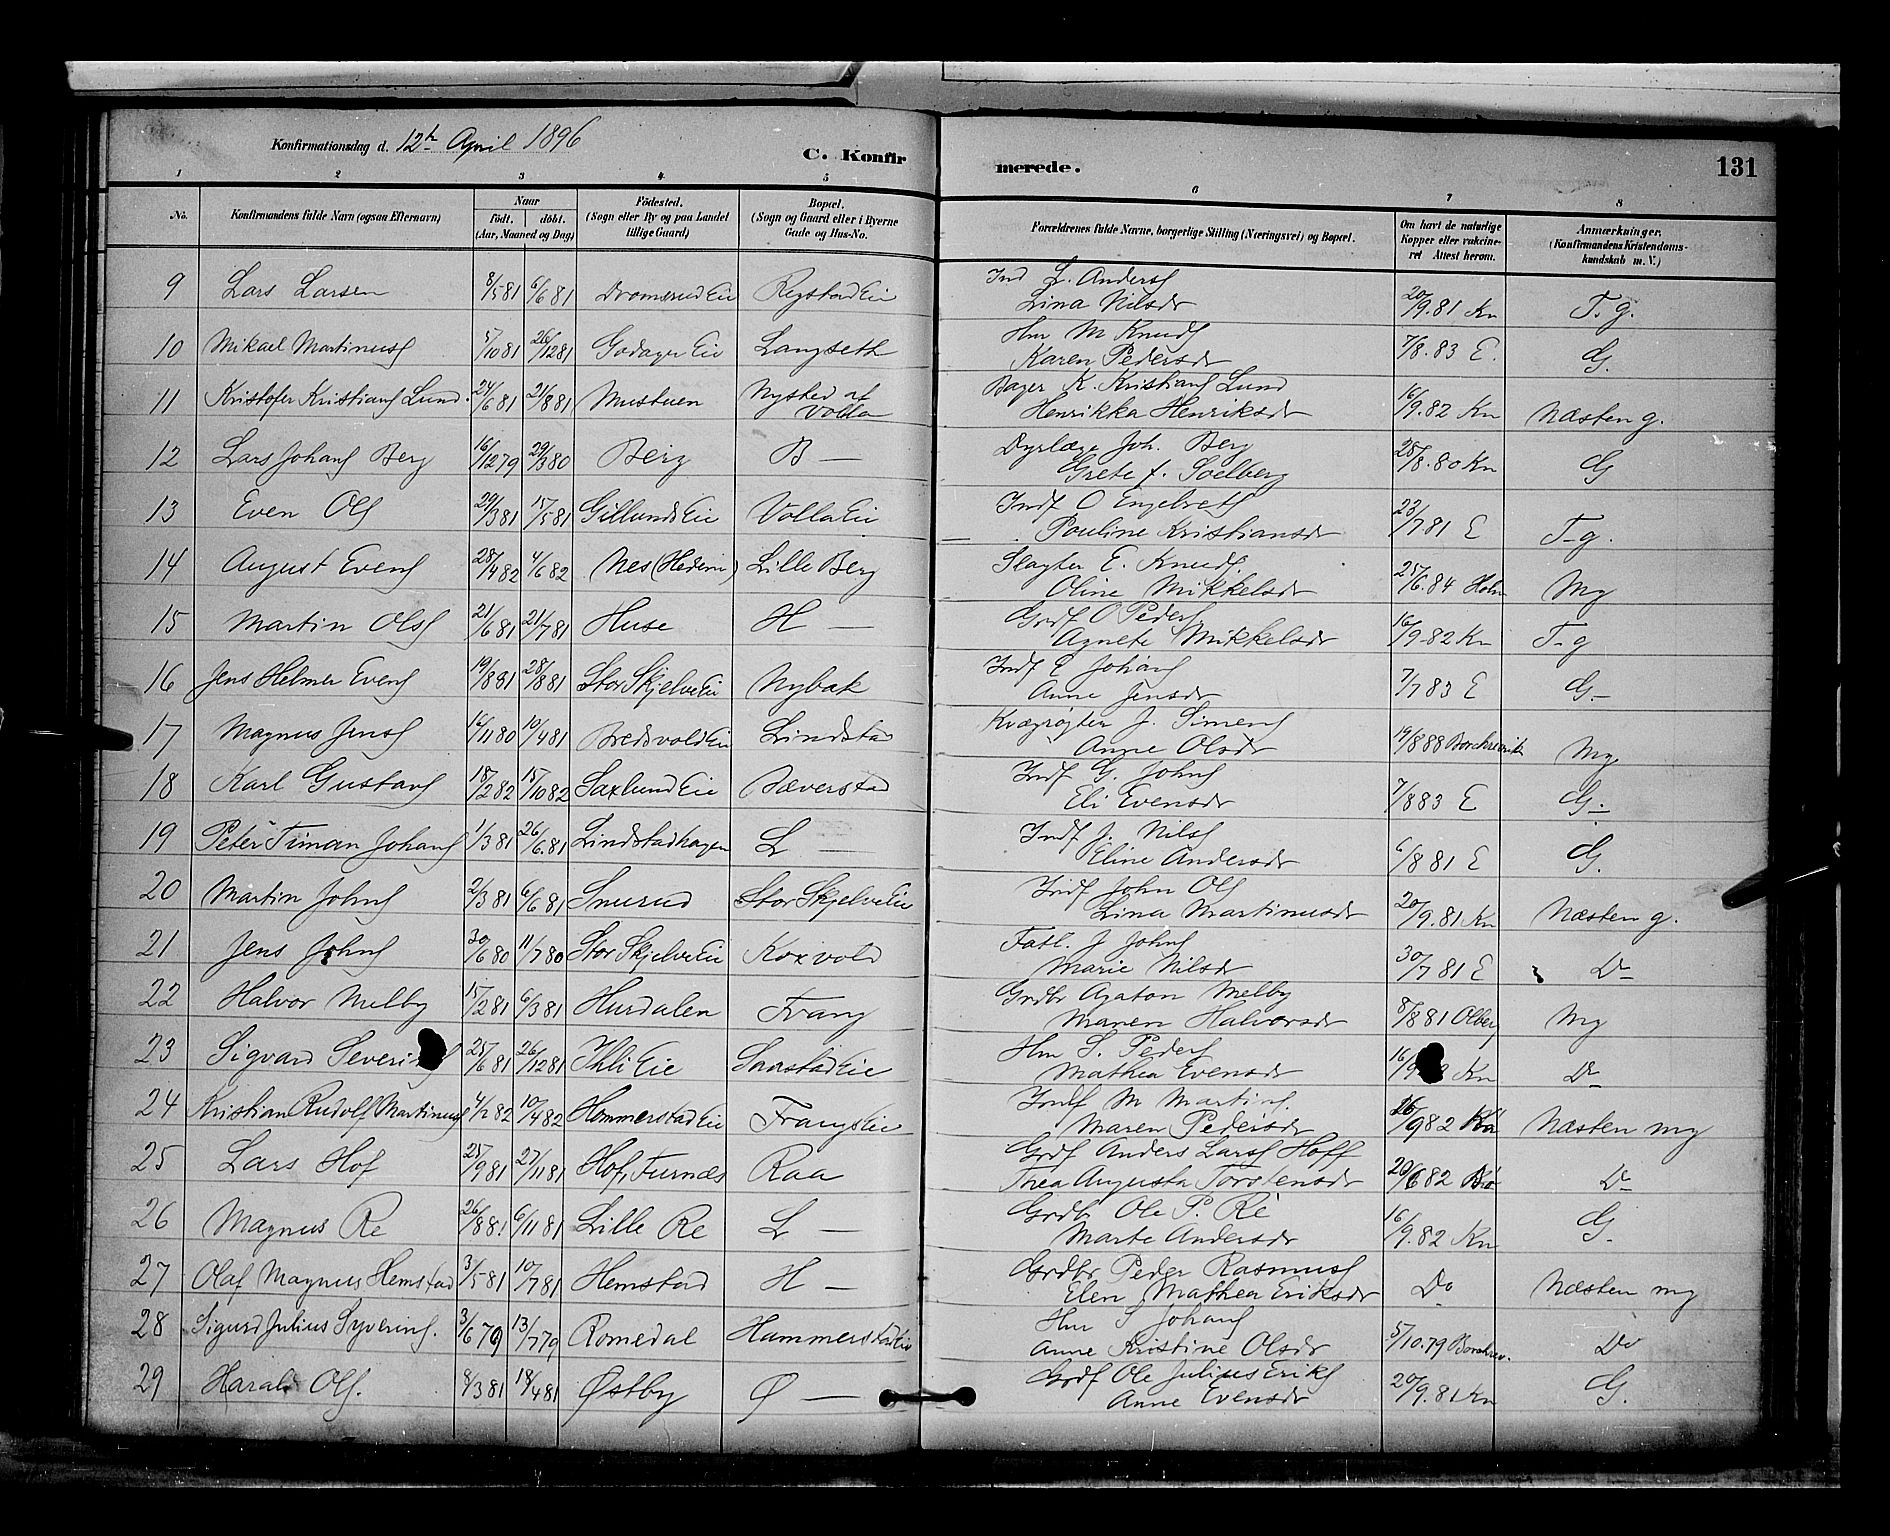 Konfirmationsdag d. 12te April 1896
C. Konfirmerede.
131
1 2 3 4 5 6 7 8
No. Konfirmandens fulde Navn (ogsaa Efternavn) Naar født. døbt. (Aar, Maaned og Dag) Fødested. (Sogn eller By og paa Landet tillige Gaard) Bopæl. (Sogn og Gaard eller i Byerne Gade og Hus-No. Forældrenes fulde Navne, borgerlige Stilling (Næringsvei) og Bopæl. Om havt de naturlige Kopper eller vakcineret Attest herom. Anmærkninger. (Konfirmandens Kristendomskundskab m. V.)
9 Lars Larsen 8/5 81 6/6 81 Eie Rystad Eie Ind L. Anders
Lina Nilsdr 20/9.81 Kn T. g.
10 Mikael Martinus 5/10 81 26/12 81 Godager Eie Langseth Hm M Knud
Karen Pedersdr 7/8. 83 E. G.
11 Kristofer Kristians Lund. 24/6 81 21/8 81 Mustuen Nysted af Volla Bager K. Kristians Lund
Henrikka Henriksdr 16/9.82 Kn Næsten g.
12 Lars Johans Berg 16/12 79 29/3 80 Berg B — Dyrlæge Joh. Berg
Grete f. Soelberg 28/8.80 Kn G
13 Even Ols 29/3 81 15/5 81 Gillunds Eie Volla Eie Indf O Engebrets
Pouline Kristiansdr 23/7 81 E T-g.
14 August Evens 28/4 82 4/6 82 Nes (Hedem) Lille Berg Slagter E. Knuds.
Oline Mikkelsdr 25/6.84 Holm Mg
15 Martin Ols 21/6 81 21/7 81 Huse H — Grdf O Peders
Agnete Mikkelsdr 16/9.82 Kn T-g
16 Jens Helmer Evens 19/8 81 28/8 81 Stor Skjelve Eie Nybak Indf E Johans
Anne Jensdr 7/7 83 E G-
17 Magnus Jens 16/11 80 10/4 81 Bredsvold Eie Lindstad Kvægrøgter J. Simens
Anne Olsdr 19/8 88 Mg
18 Karl Gustavs 18/2 82 15/10 82 Saxlund Eie Bæverstad Indf G. Johns
Eli Evensdr 7/8 83 E G-
19 Peter Timan Johans 1/3 81 26/6.81 Lindstadhagen L — Indf J. Nils
Eline Andersdr 6/8 81 E G.
20 Martin Johns 2/3 81 6/6 81 Snurud Stor Skjelve Eie Indf John Ols
Lina Martinusdr 20/9.81 Kn Næsten g.
21 Jens Johns 30/6 80 11/7 80 Stor Skjelve Eie Koxvold Fatl. J Johns
Marie Nilsdr 30/7 81 E Do
22 Halvor Melby 15/2 81 6/3 81 Hurdalen Frang Grdbr Agaton Melby
Maren Halvorsdr 8/8 81 Olberg Mg
23 Sigvard Severin 25/6 81 26/12 81 Ihli Eie Saastad Eie Hm S. Peders
Mathea Evensdr 16/9 Kn Do
24 Kristian Rudolf Martinus 4/2 82 10/4 82 Hommerstad Eie Frangs Eie Indf M Martins.
Maren Pedersdr 16/9 82 Kn Næsten mg
25 Lars Hof 25/9 81 27/11 81 Hof, Furnæs Raa Grdf Anders Lars Hoff
Thea Augusta Torstensdr 20/6 82 Do
26 Magnus Re 26/8 81 6/11 81 Lille Re L — Grdbr Ole P. Re
Marte Andersdr 16/9.82 Kn G.
27 Olaf Magnus Hemstad 3/5 81 10/7 81 Hemstad H — Grdbr Peder Rasmus
Elen Mathea Eriksdr Do Næsten mg
28 Sigurd Julius Syverins. 3/6 79 13/7 79 Romedal Hammerstad Eie Hm S Johans
Anne Kristine Olsdr 5/10.79 Do
29 Harald Ols. 8/3 81 18/4 81 Østby Ø — Grdf Ole Julius Eriks
Anne Evensdr 20/9.81 Kn G.